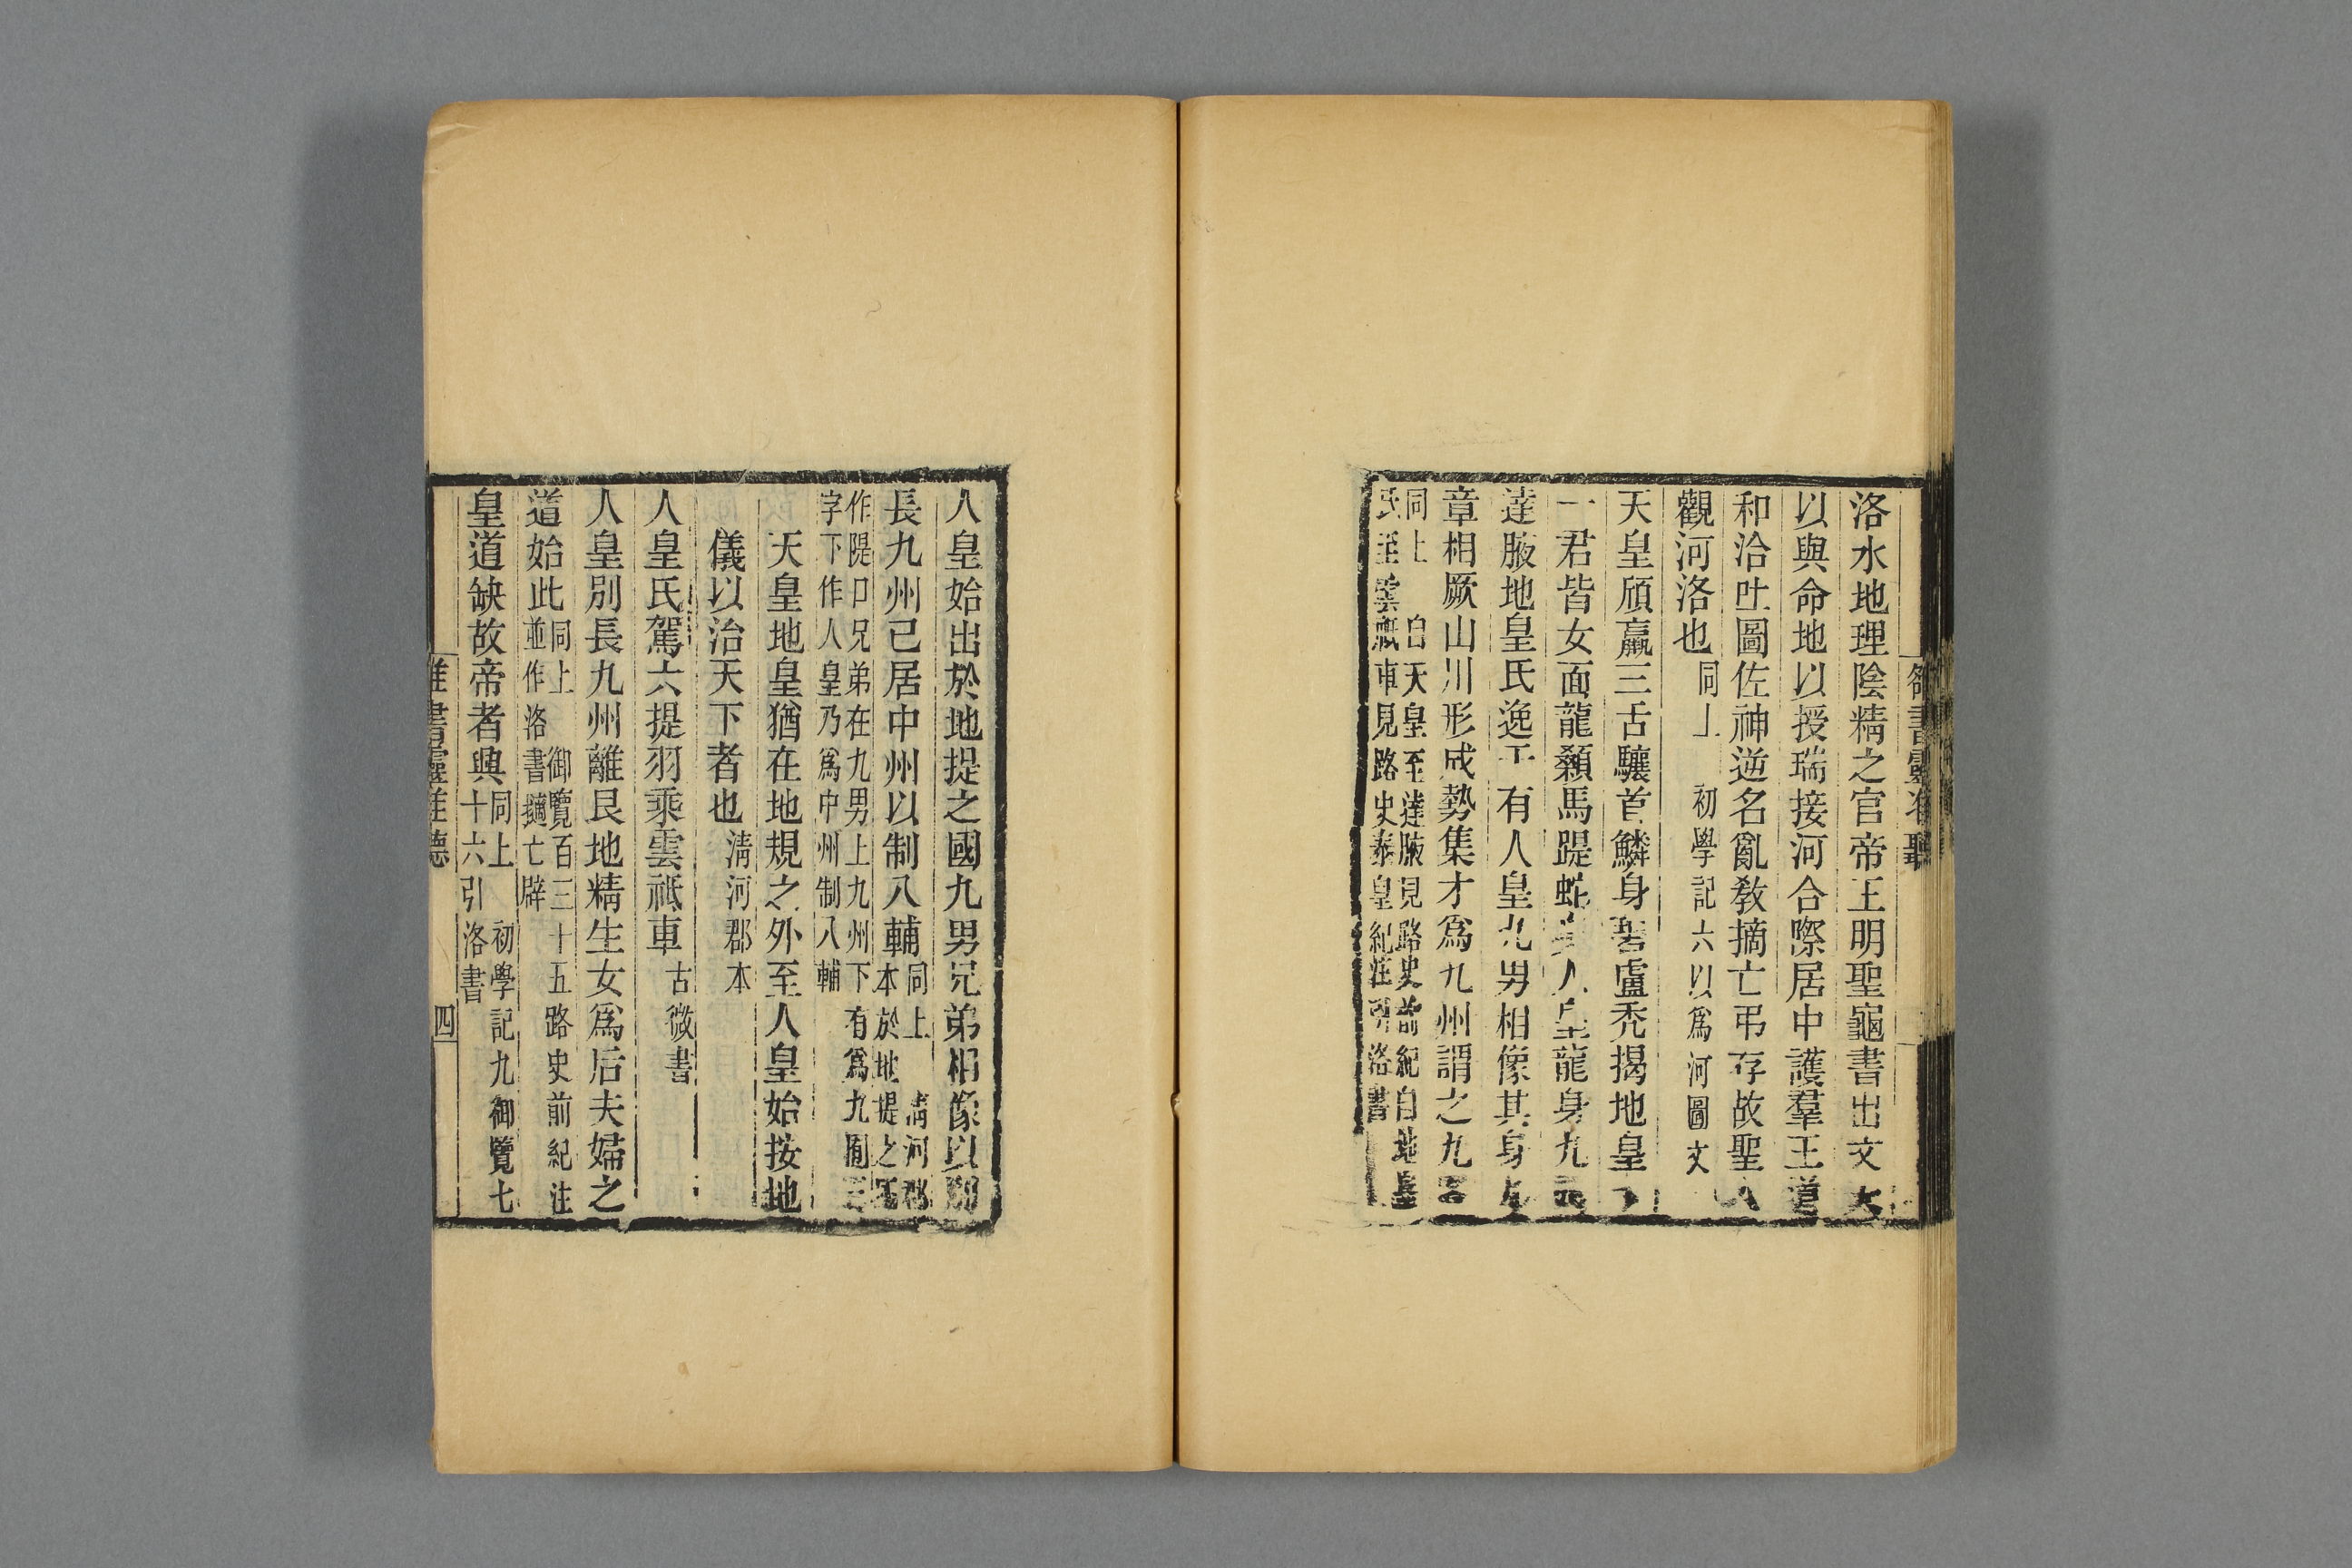 洛水地理陰精之官帝王明聖龜書出文天
以與命地以授瑞接河合際居中護羣王道
和洽吐圖佐神逆名亂教摘亡弔存故聖人
觀河洛也同上 初學記六以爲河圖文
天皇頎羸三舌驤首鱗身碧盧禿揭地皇十
一君皆女面龍顙馬踶蛇身人皇龍身九章
達腋地皇氏逸于有人皇九男相像其身九
章相厥山川形成勢集才爲九州謂之九囿
同上 自天皇至達腋見路史前紀自地皇
氏至雲祇車見路史泰皇紀注引洛書
人皇始出於地提之國九男兄弟相像以別
長九州己居中州以制八輔同上 清河郡
本於地提之國
作隄口兄弟在九男上九州下有爲九囿三
字下作人皇乃爲中州制八輔
天皇地皇猶在地規之外至人皇始按地
儀以治天下者也清河郡本
人皇氏駕六提羽乘雲祇車古微書
人皇別長九州離艮地精生女爲后夫婦之
道始此同上 御覽百三十五路史前紀注
並作洛書摘亡辟
皇道缺故帝者興同上 初學記九御覽七
十六引洛書
四